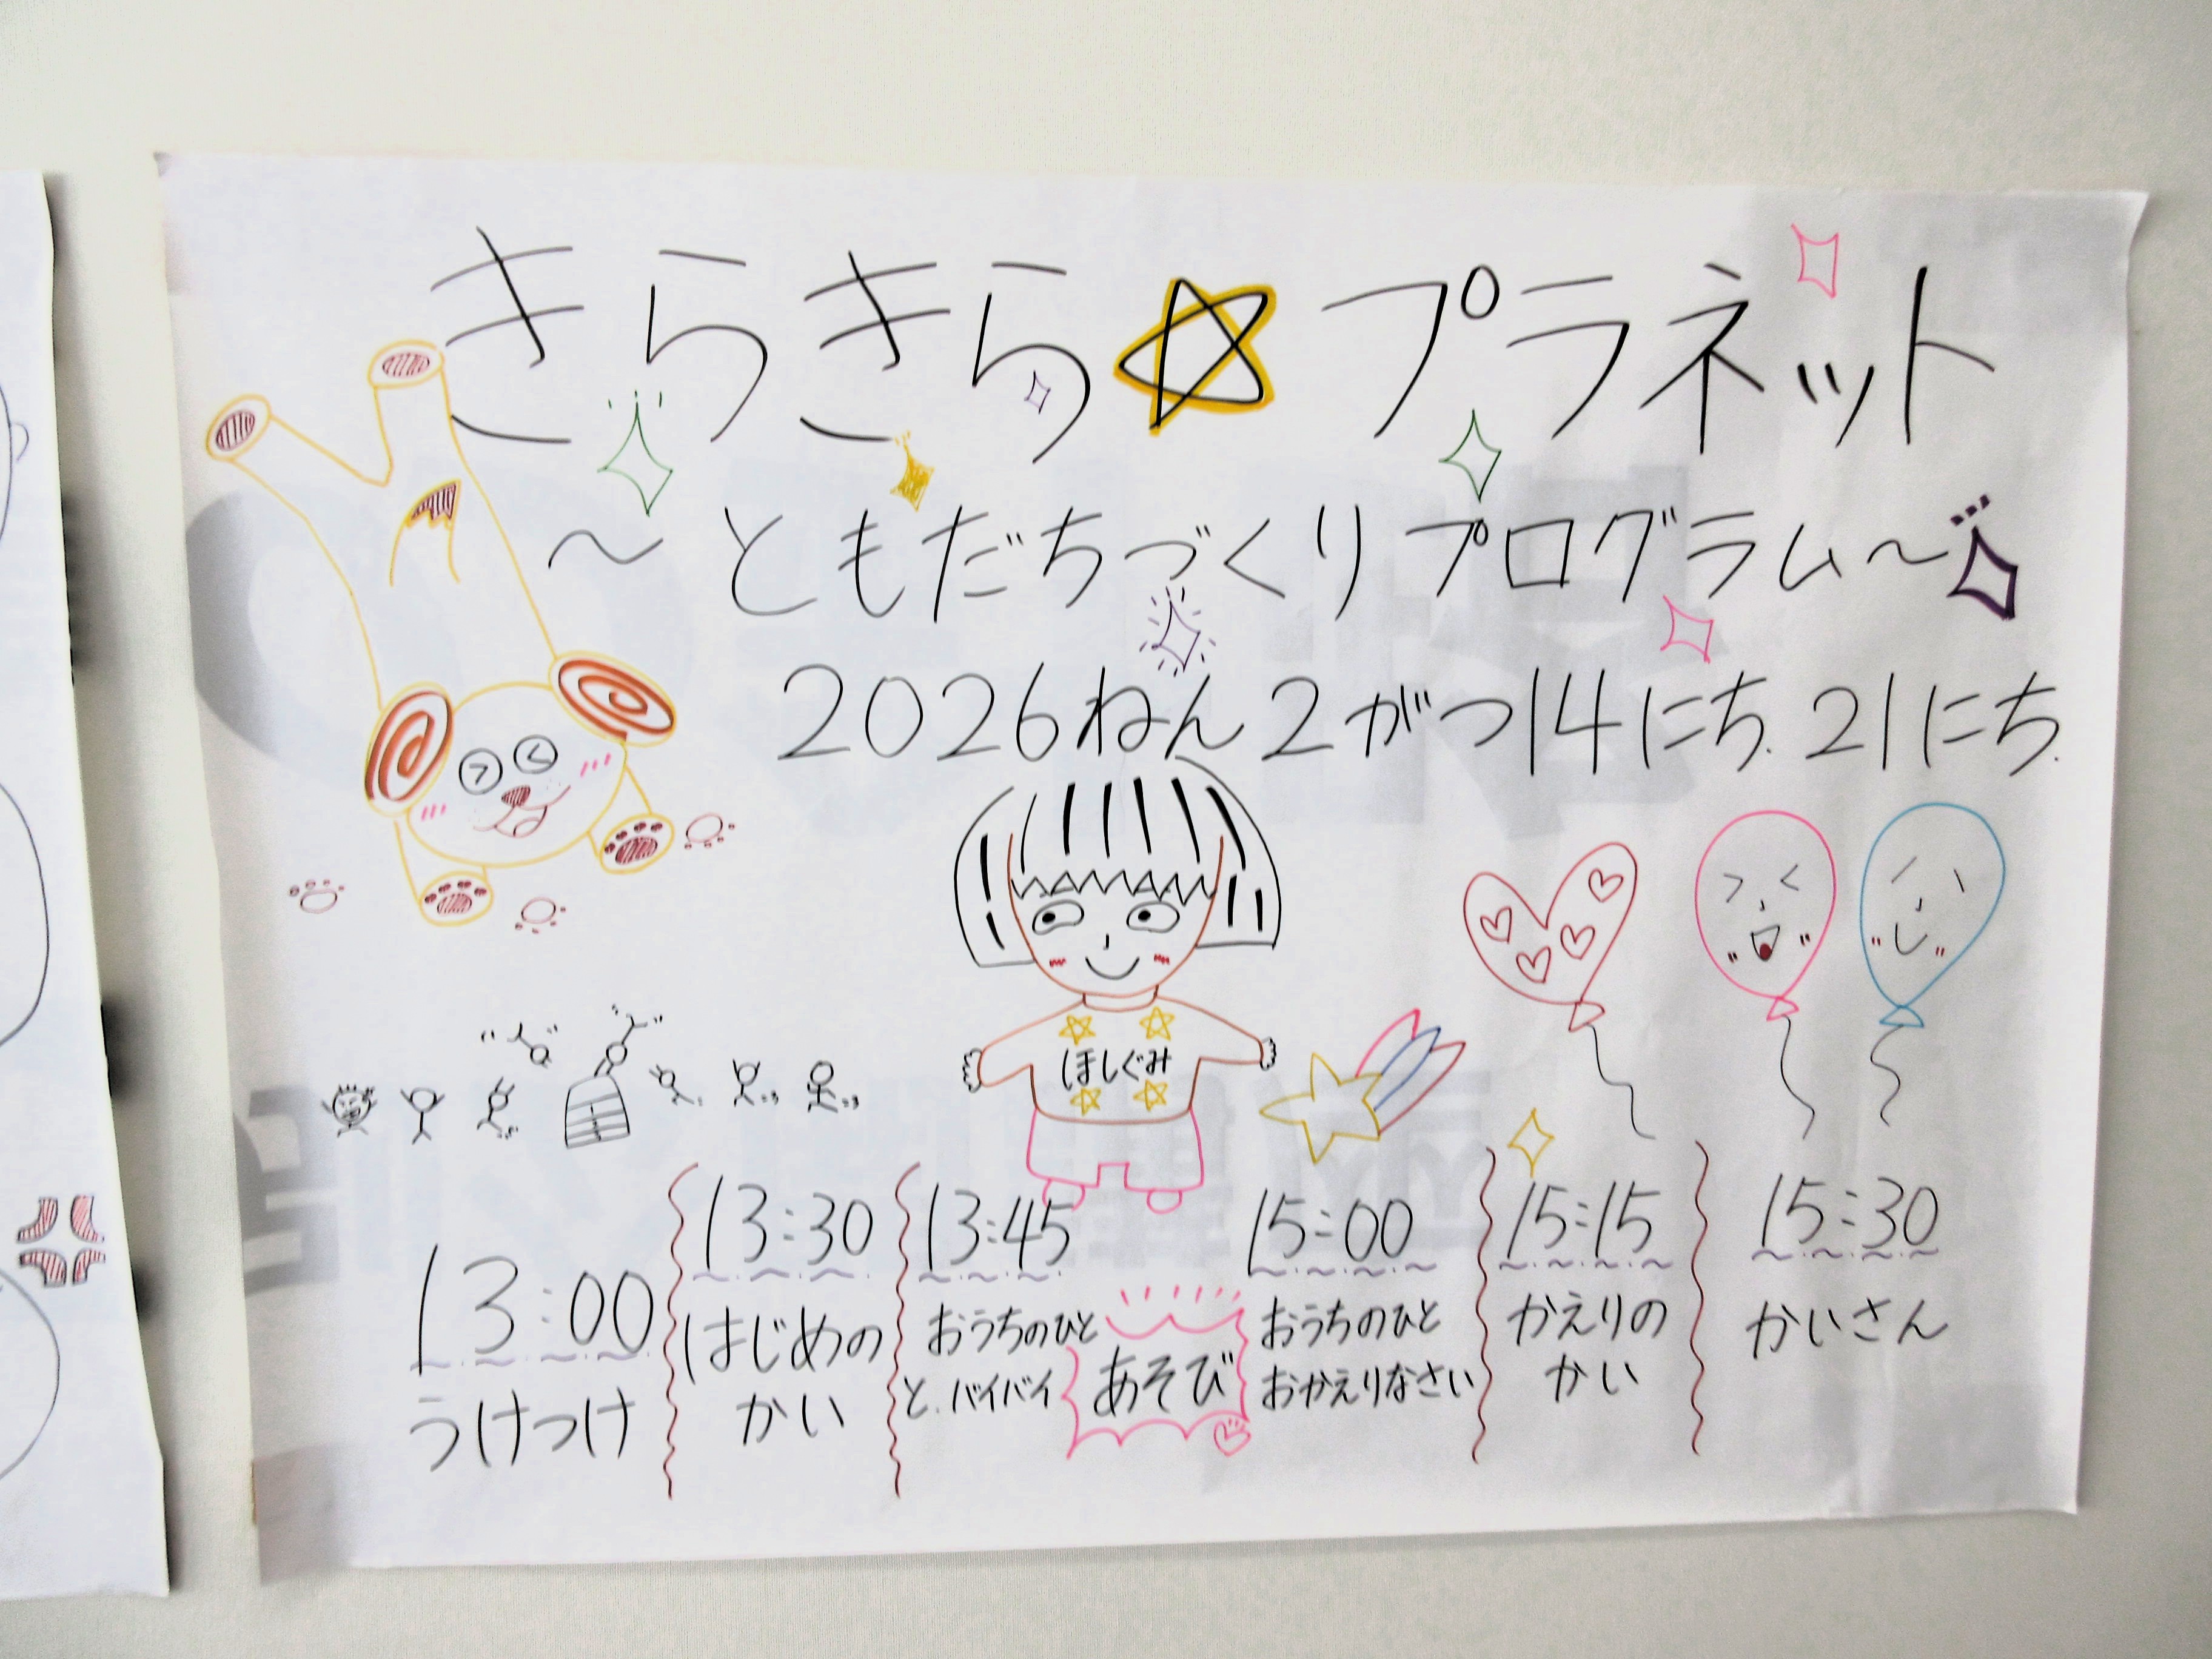 きらきら☆プラネット
～ともだちづくりプログラム～
2026ねん2がつ14にち.21にち.
ほしぐみ
13:00
うけつけ
13:30
はじめの
かい
13:45
おうちのひと
と.バイバイ
あそび
15:00
おうちのひと
おかえりなさい
15:15
かえりの
かい
15:30
かいさん